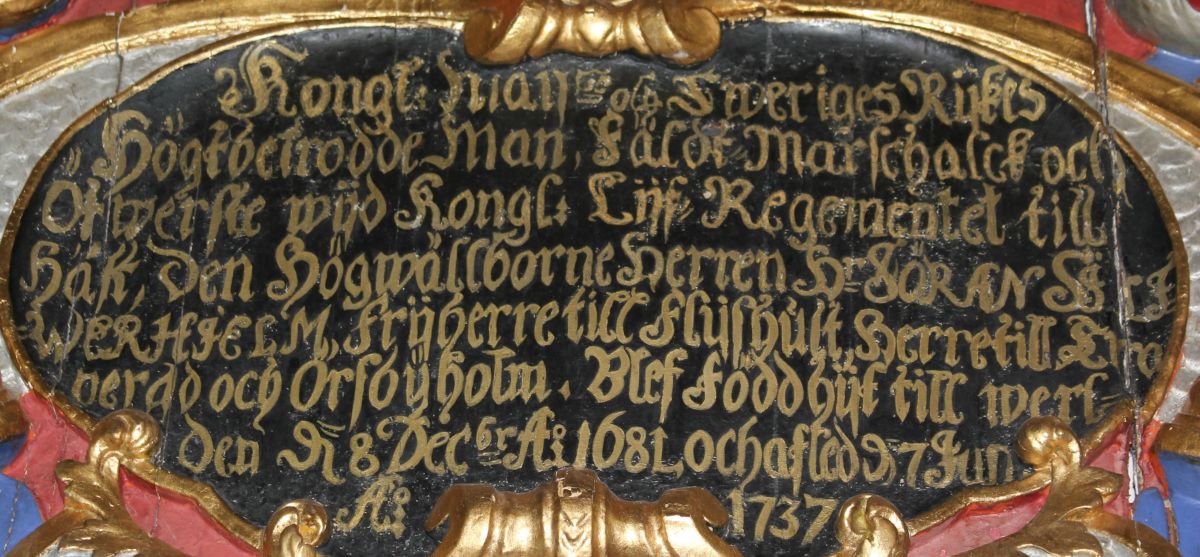 Kongl: Maÿtz och Sweriges Rijkes
Högtbetrodde Man, Fält Marschalck och
Öfwerste wijd Kongl: Lijf Regementet till
Häst, Den Högwällborne Herren Hr JÖRAN SIL
WERHIELM, Friÿherre till Flijshult, Herre till
och Orsöÿholm. Blef Född hijt till werl
den d 8 Decbr Aō: 1681 och afled d 7 Jun
Aō: 1737